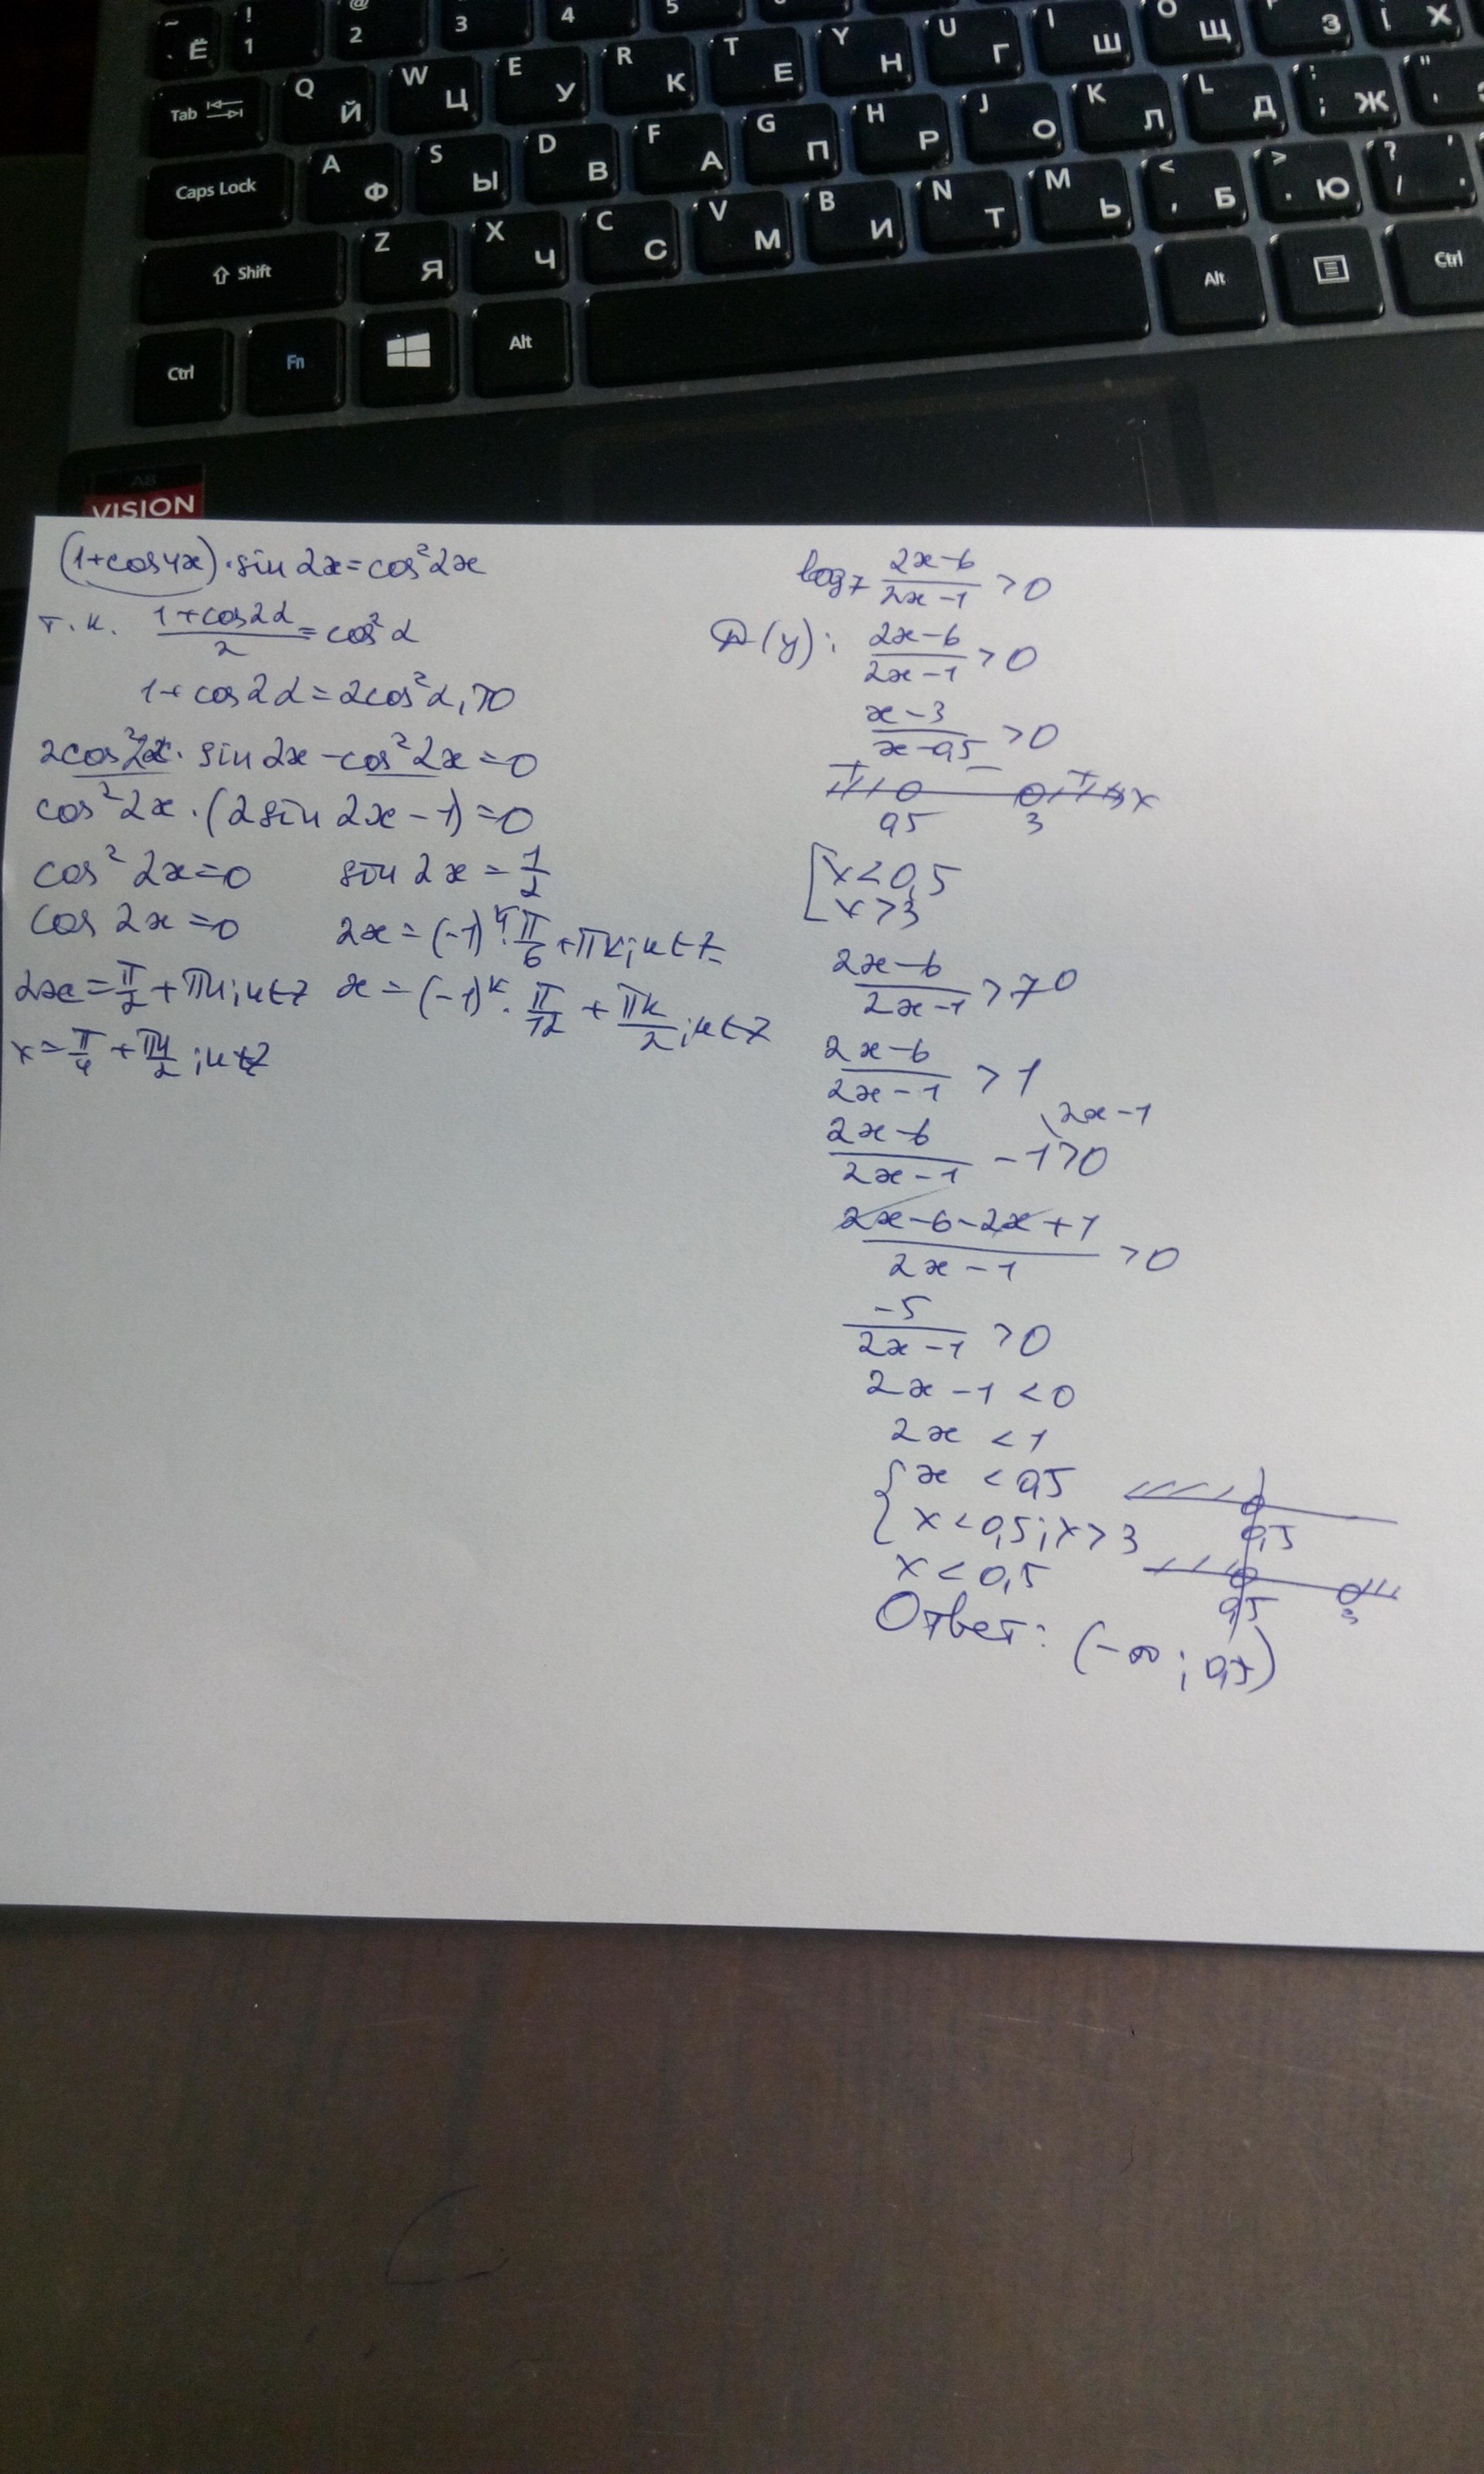 ~ Ё ! 1 @ 2 3 4 5 O Щ З Х
Tab Q Й W Ц E У R К T Е Y Н U Г I Ш
Caps Lock A Ф S Ы D В F А G П H Р J О K Л L Д ; Ж " '
Shift Z Я X Ч C С V М B И N Т M Ь < , Б > . Ю ? /
Ctrl Fn Alt Alt Ctrl
VISION
(1+cos4x)·sin 2x=cos²2x
т.к. (1+cos2α)/2=cos²α
1+cos2α=2cos²α, то
2cos²2x·sin2x-cos²2x=0
cos²2x·(2sin2x-1)=0
cos²2x=0 sin2x=1/2
cos2x=0 2x=(-1)ᵏ·π/6+πk; k∈Z
2x=π/2+πn; n∈Z x=(-1)ᵏ·π/12+πk/2; k∈Z
x=π/4+πn/2; n∈Z
log₇ (2x-6)/(2x-1) >0
D(y): (2x-6)/(2x-1) >0
(x-3)/(x-0,5) >0
+ - +
0,5 3 x
[x<0,5
x>3
(2x-6)/(2x-1) >7⁰
(2x-6)/(2x-1) >1
(2x-6)/(2x-1) -1>0 \2x-1
(2x-6-2x+1)/(2x-1) >0
-5/(2x-1) >0
2x-1<0
2x<1
{x<0,5
x<0,5; x>3
0,5
x<0,5
0,5 3
Ответ: (-∞; 0,5)